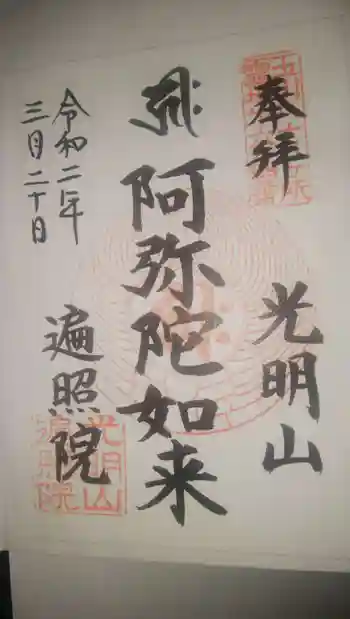 奉拝
光明山
阿弥陀如来
令和二年
三月二十日
遍照院
光明山
遍照院